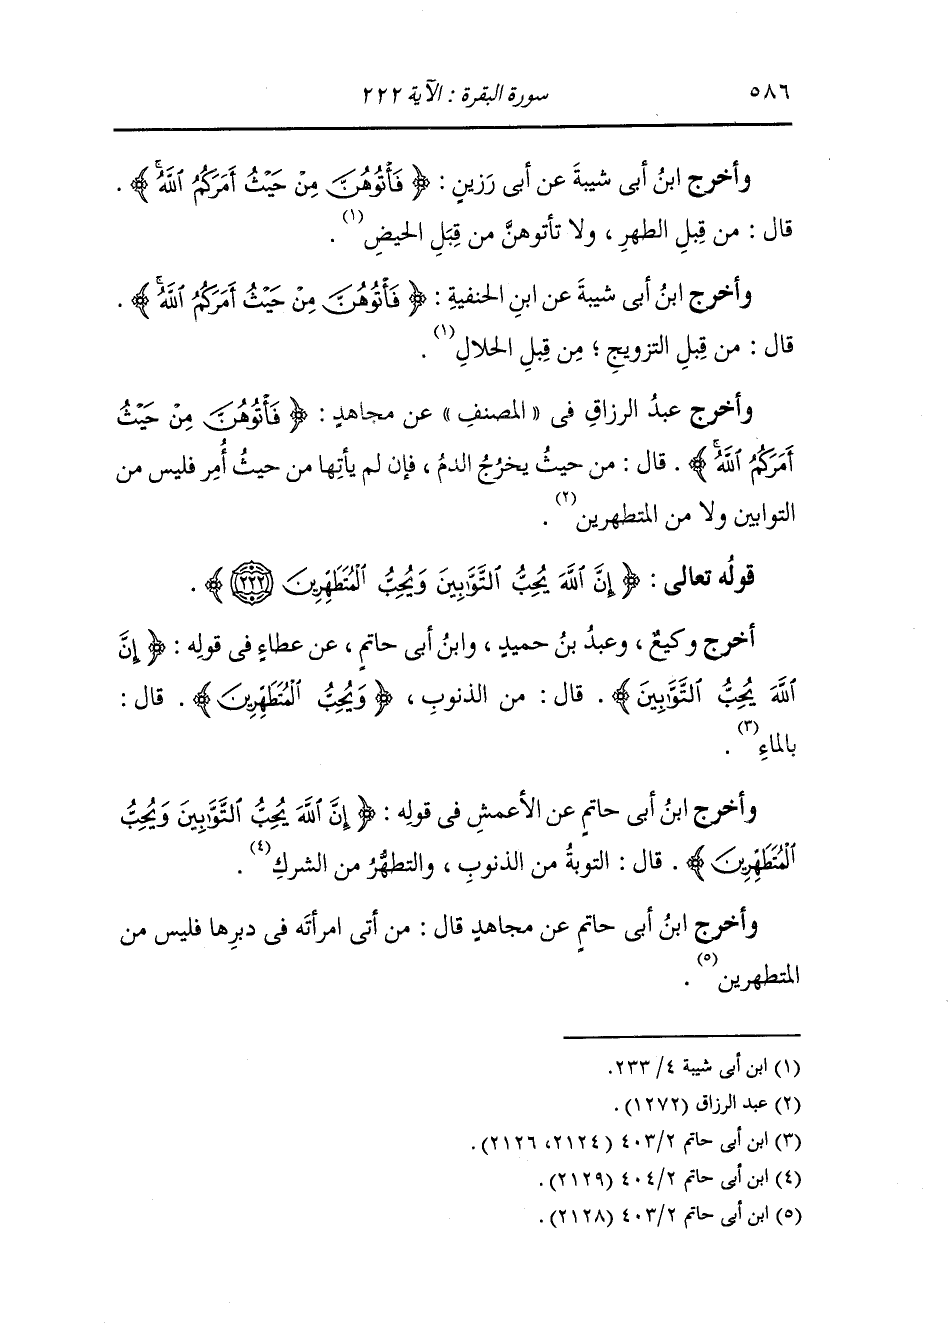 ٥٨٦
سورة البقرة : الآية ٢٢٢
وأخرج ابنُ أبى شيبةَ عن أبى رَزينٍ : ﴿ فَأْتُوهُنَّ مِنْ حَيْثُ أَمَرَكُمُ ٱللَّهُۚ ﴾ .
قال : من قِبلِ الطهرِ ، ولا تأتوهنَّ من قِبَلِ الحيضِ(١) .
وأخرج ابنُ أبى شيبةَ عن ابنِ الحنفيةِ : ﴿ فَأْتُوهُنَّ مِنْ حَيْثُ أَمَرَكُمُ ٱللَّهُۚ ﴾ .
قال : من قِبلِ التزويجِ ؛ مِن قِبلِ الحلالِ(١) .
وأخرج عبدُ الرزاقِ فى « المصنفِ » عن مجاهدٍ : ﴿ فَأْتُوهُنَّ مِنْ حَيْثُ
أَمَرَكُمُ ٱللَّهُۚ ﴾ . قال : من حيثُ يخرُجُ الدمُ ، فإن لم يأتِها من حيثُ أُمِر فليس من
التوابين ولا من المتطهرين(٢) .
قولُه تعالى : ﴿ إِنَّ ٱللَّهَ يُحِبُّ ٱلتَّوَّٰبِينَ وَيُحِبُّ ٱلْمُتَطَهِّرِينَ ٢٢٢ ﴾ .
أخرج وكيعٌ ، وعبدُ بنُ حميدٍ ، وابنُ أبى حاتمٍ ، عن عطاءٍ فى قولِه : ﴿ إِنَّ
ٱللَّهَ يُحِبُّ ٱلتَّوَّٰبِينَ ﴾ . قال : من الذنوبِ ، ﴿ وَيُحِبُّ ٱلْمُتَطَهِّرِينَ ﴾ . قال :
بالماءِ(٣) .
وأخرج ابنُ أبى حاتمٍ عن الأعمشِ فى قولِه : ﴿ إِنَّ ٱللَّهَ يُحِبُّ ٱلتَّوَّٰبِينَ وَيُحِبُّ
ٱلْمُتَطَهِّرِينَ ﴾ . قال : التوبةُ من الذنوبِ ، والتطهُّرُ من الشركِ(٤) .
وأخرج ابنُ أبى حاتمٍ عن مجاهدٍ قال : من أتى امرأتَه فى دبرِها فليس من
المتطهرين(٥) .
(١) ابن أبى شيبة ٤/ ٢٣٣.
(٢) عبد الرزاق (١٢٧٢) .
(٣) ابن أبى حاتم ٤٠٣/٢ (٢١٢٤، ٢١٢٦) .
(٤) ابن أبى حاتم ٤٠٤/٢ (٢١٢٩) .
(٥) ابن أبى حاتم ٤٠٣/٢ (٢١٢٨) .